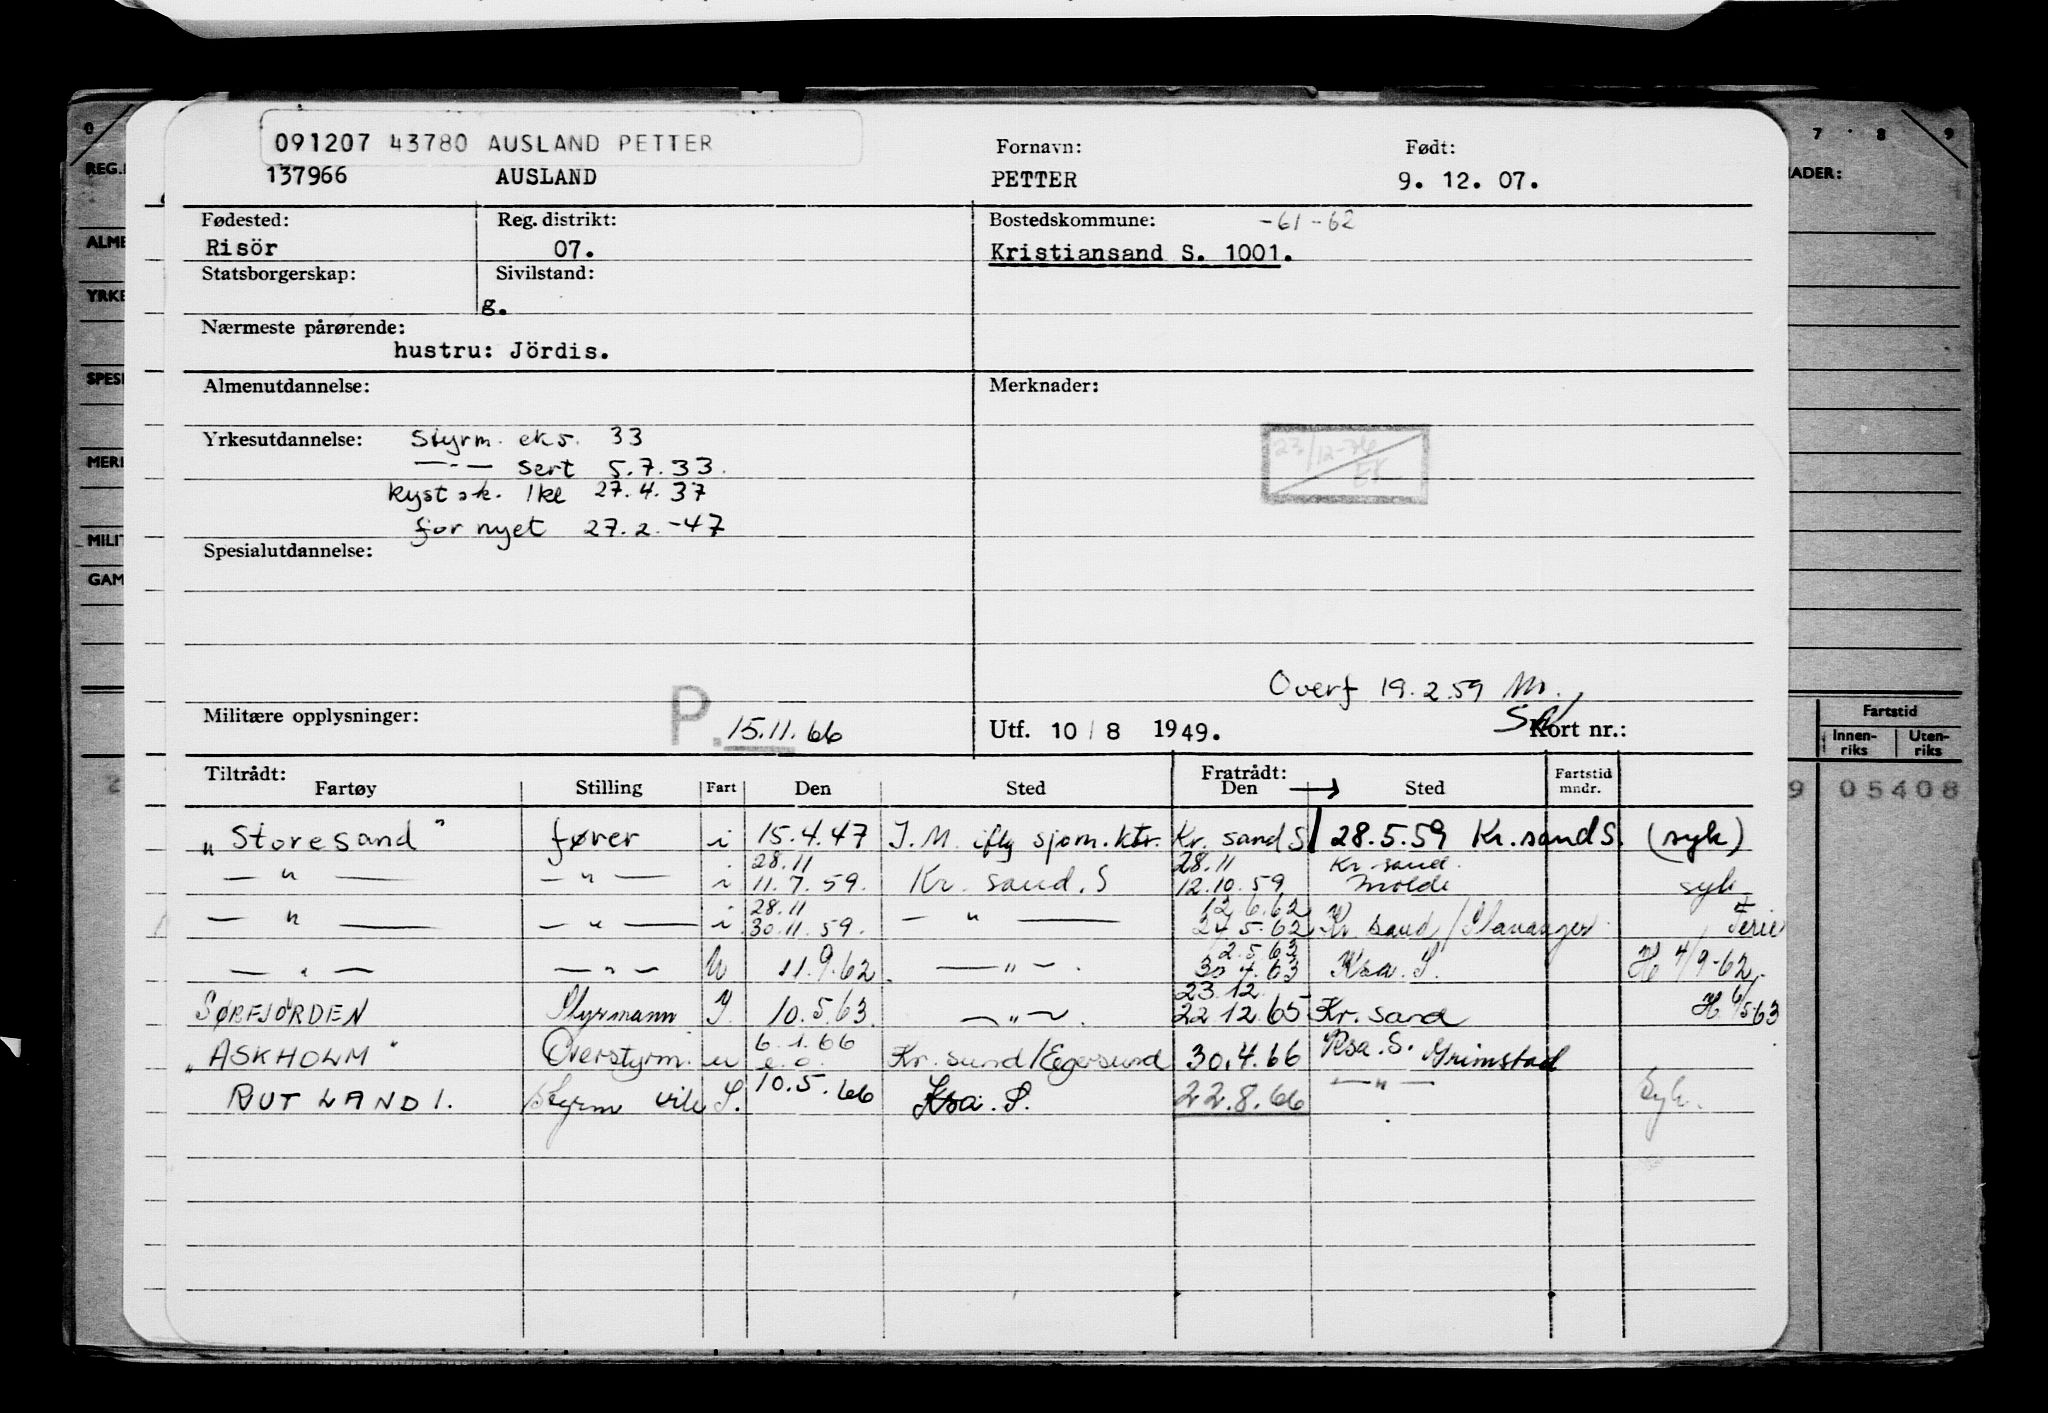 0 7 8 9
091207 43780 AUSLAND PETTER
137966 AUSLAND
Fornavn: Født:
PETTER 9. 12. 07.
Fødested: Reg. distrikt: Bostedskommune: -61-62
Risör 07. Kristiansand S. 1001.
Statsborgerskap: Sivilstand:
g.
Nærmeste pårørende:
hustru: Jördis.
Almenutdannelse: Merknader:
Yrkesutdannelse: Styrm. eks. 33
—"— sert 5.7.33.
kystsk. 1kl 27.4.37
fornyet 27.2.-47
23/12-76
EK
Spesialutdannelse:
Overf 19.2.59
Militære opplysninger: P. 15.11.66 Utf. 10/8 1949. Kort nr.:
Tiltrådt: Fratrådt:
Fartøy Stilling Fart Den Sted Den → Sted Fartstid mndr.
"Storesand" fører i 15.4.47 J.M. iflg sjøm.ktr. Kr. sand S 28.5.59 Kr. sand S. (syk)
—"— —"— i 28.11 28.11 Kr. sand.
i 11.7.59. Kr. sand. S 12.10.59 Molde syk
—"— —"— i 28.11 —"— 12.6.62
i 30.11.59. 24.5.62 Kr. sand/Stavanger Ferie
—"— —"— U 11.9.62. —"— 2.5.63
30.4.63 Krsa. S. H 4/9-62.
SØRFJORDEN Styrmann I. 10.5.63. —"— 23.12.
22.12.65 Kr. sand H 6/5 63
"ASKHOLM" Overstyrm. u 6.1.66 Kr. sund/Egersund 30.4.66 Krsa. S. Grimstad
RUTLAND 1. Styrm vik S. 10.5.66 Krsa. S. 22.8.66 —"— Syk.
REG.
ALME
YRKE
SPESI
MERI
MILIT
GAM
ADER:
Fartstid
Innenriks Utenriks
2 9 05408